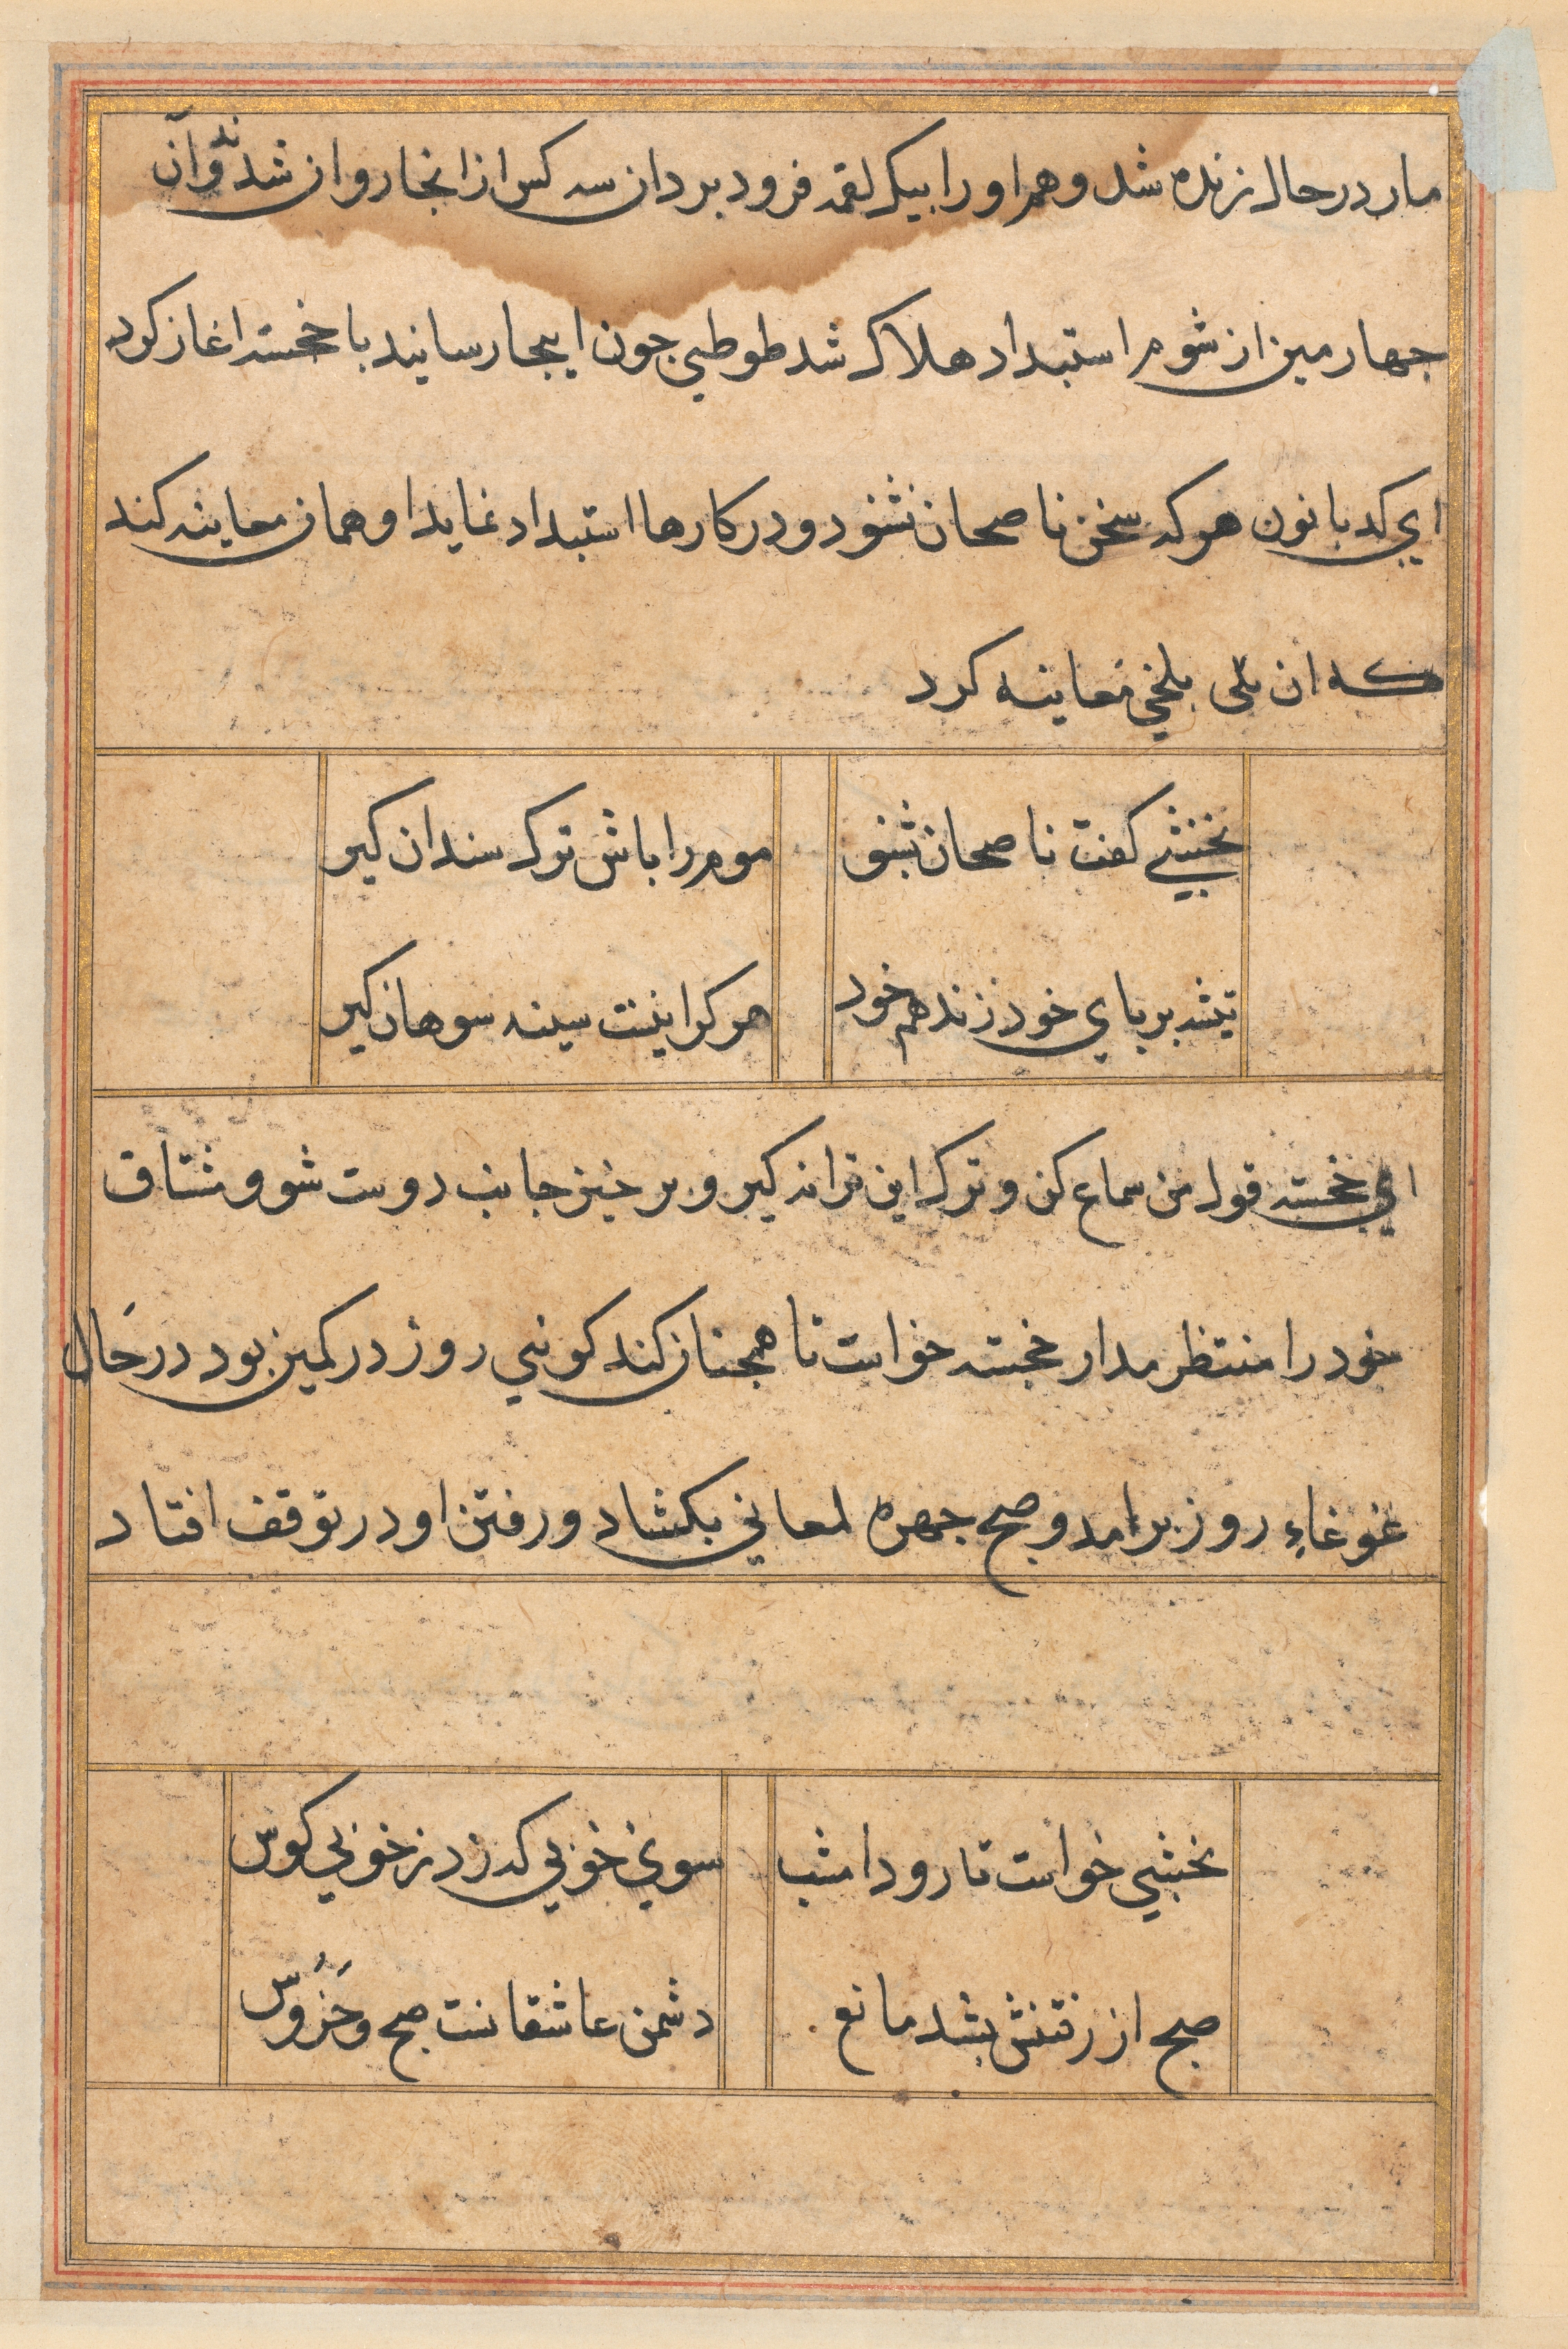 مار در حال زنده شد و هم او را بیک لقمه فرود برد ان سه کس از انجا روان شدند و آن
جهارمین از شوم استبداد هلاک شد طوطی جون اینجا رسانید با خجسته اغاز کرد
ای کدبانون هر که سخن ناصحان نشنود و در کارها استبداد نماید او همان معاینه کند
که ان بلخی معاینه کرد
نخشبی گفت ناصحان بشنو
موم را باش ترک سندان کیر
تیشه بر پای خود زند هم خود
هر کرا نیست سینه سوهان کیر
ای خجسته قول من سماع کن و ترک این ترانه کیر و بر خیز جانب دوست شو و مشتاق
خود را منتظر مدار خجسته خواست تا همجنان کند کوئی روز در کمین بود در حال
غوغاء روز برامد و صبح جهره لمعانی بکشاد و رفتن او در توقف افتاد
نخشبی خواست تا رود امشب
سوی خوبی که زد ز خوبی کوس
صبح از رفتنش بشد مانع
دشمن عاشقانست صبح و خروس